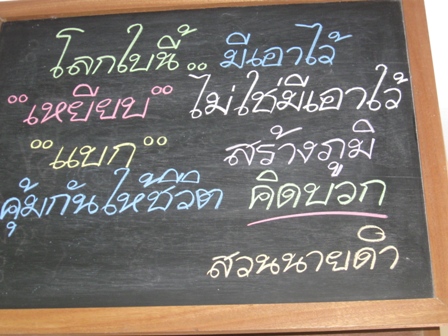 โลกใบนี้ มีเอาไว้
"เหยียบ" ไม่ใช่มีเอาไว้
"แบก" สร้างภูมิ
คุ้มกันให้ชีวิต คิดบวก
สวนนายดำ